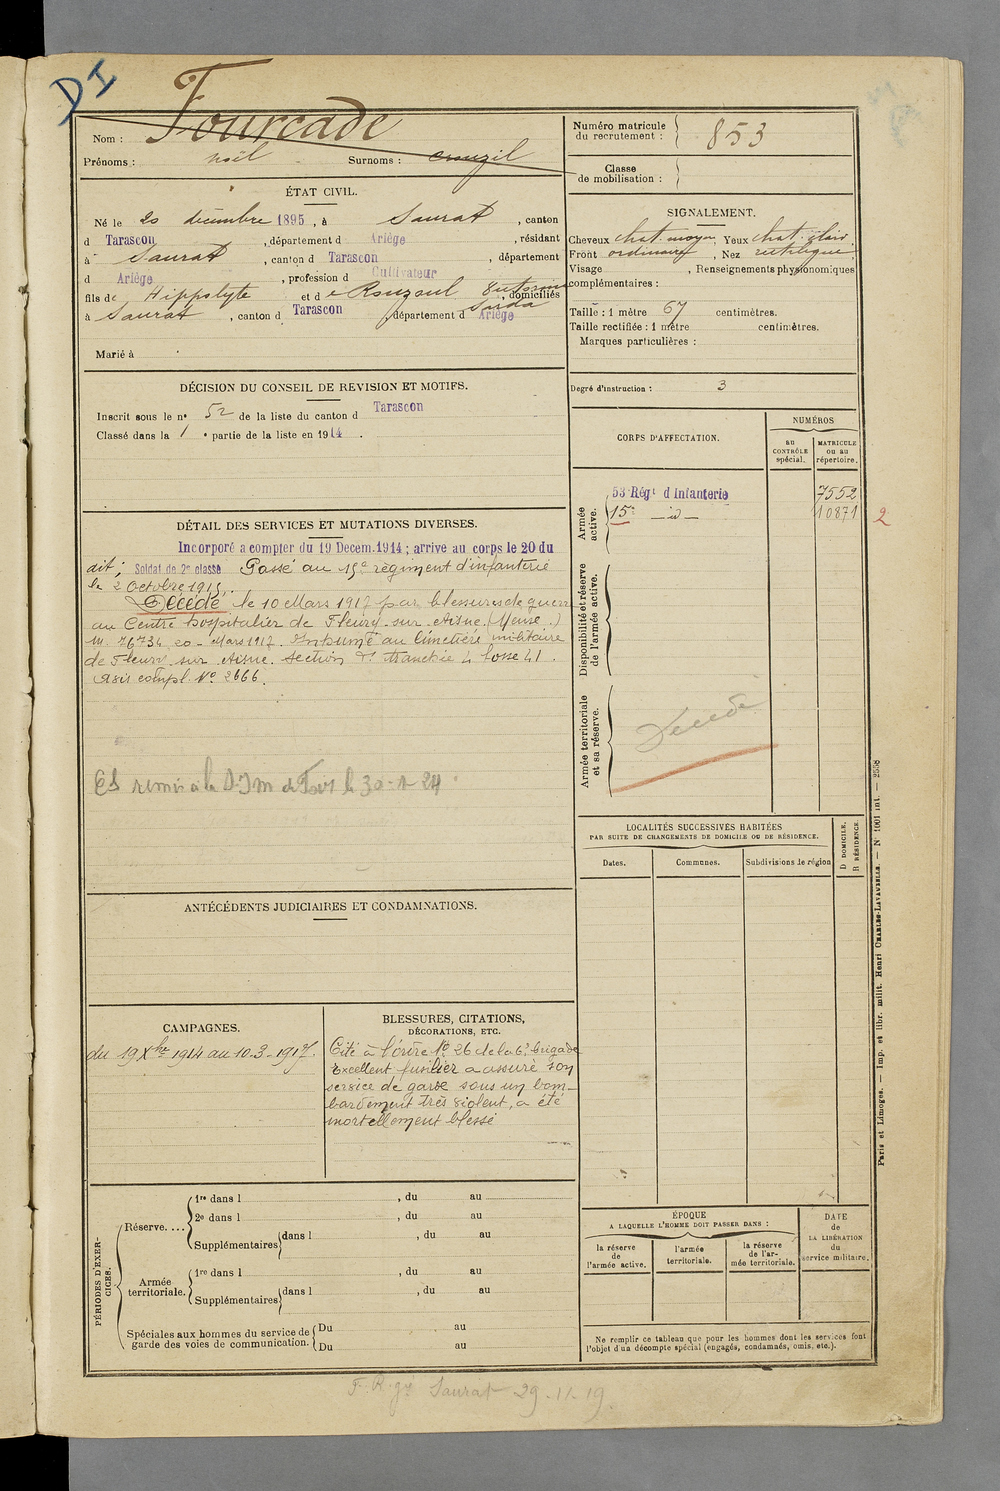 DI
Nom : Fourcade
Prénoms : noël Surnoms : crouzil
ÉTAT CIVIL.
Né le 20 décembre 1895, à Saurat, canton
d Tarascon, département d Ariège, résidant
à Saurat, canton d Tarascon, département
d Ariège, profession d Cultivateur
fils de Hippolyte et d e Rouzoul, domiciliés
à Saurat, canton d Tarascon, département d Ariège
Marié à
DÉCISION DU CONSEIL DE REVISION ET MOTIFS.
Inscrit sous le n° 52 de la liste du canton d Tarascon
Classé dans la 1 e partie de la liste en 1914.
DÉTAIL DES SERVICES ET MUTATIONS DIVERSES.
Incorporé à compter du 19 Decem. 1914 ; arrivé au corps le 20 du
dit ; Soldat de 2e classe Passé au 15e régiment d'infanterie
le 2 Octobre 1915.
Décédé le 10 Mars 1917 par blessures de guerre
au Centre hospitalier de Fleury-sur-Aisne (Meuse.)
M. 76734 20-Mars 1917. Inhumé au Cimetière militaire
de Fleury sur Aisne. Section D. tranchée 4 fosse 41.
Avis compl. N° 2666.
ES remis à la D.I.M de Foix le 30-1-24
ANTÉCÉDENTS JUDICIAIRES ET CONDAMNATIONS.
CAMPAGNES.
du 19 Xbre 1914 au 10.3.1917.
BLESSURES, CITATIONS,
DÉCORATIONS, ETC.
Cité à l'ordre N° 26 de la 6e brigade
Excellent fusilier a assuré son
service de garde sous un bom-
bardement très violent, a été
mortellement blessé
PÉRIODES D'EXER-
CICES.
Réserve. ...
1re dans l , du au
2e dans l , du au
Supplémentaires dans l , du au
Armée
territoriale.
1re dans l , du au
Supplémentaires dans l , du au
Spéciales aux hommes du service de
garde des voies de communication.
Du au
Du au
Numéro matricule
du recrutement : 853
Classe
de mobilisation :
SIGNALEMENT.
Cheveux chat. moyen, Yeux chat. clair,
Front ordinaire, Nez rectiligne,
Visage , Renseignements physionomiques
complémentaires :
Taille : 1 mètre 67 centimètres.
Taille rectifiée : 1 mètre centimètres.
Marques particulières :
Degré d'instruction : 3
CORPS D'AFFECTATION.
NUMÉROS
au
CONTRÔLE
spécial.
MATRICULE
ou au
répertoire.
Armée
active.
53e Régt d Infanterie 7552
15e — id — 10871 2
Disponibilité et réserve
de l'armée active.
Armée territoriale
et sa réserve.
Décédé
LOCALITÉS SUCCESSIVES HABITÉES
PAR SUITE DE CHANGEMENTS DE DOMICILE OU DE RÉSIDENCE.
D DOMICILE.
R RÉSIDENCE.
Dates. Communes. Subdivisions de région
ÉPOQUE
A LAQUELLE L'HOMME DOIT PASSER DANS :
la réserve
de
l'armée active.
l'armée
territoriale.
la réserve
de l'ar-
mée territoriale.
DATE
de
LA LIBÉRATION
du
service militaire.
Ne remplir ce tableau que pour les hommes dont les services font
l'objet d'un décompte spécial (engagés, condamnés, omis, etc.).
Paris et Limoges. — Imp. et libr. milit. Henri CHARLES-LAVAUZELLE. — N° 1001 int. — 2558
Saurat 29-11-19.